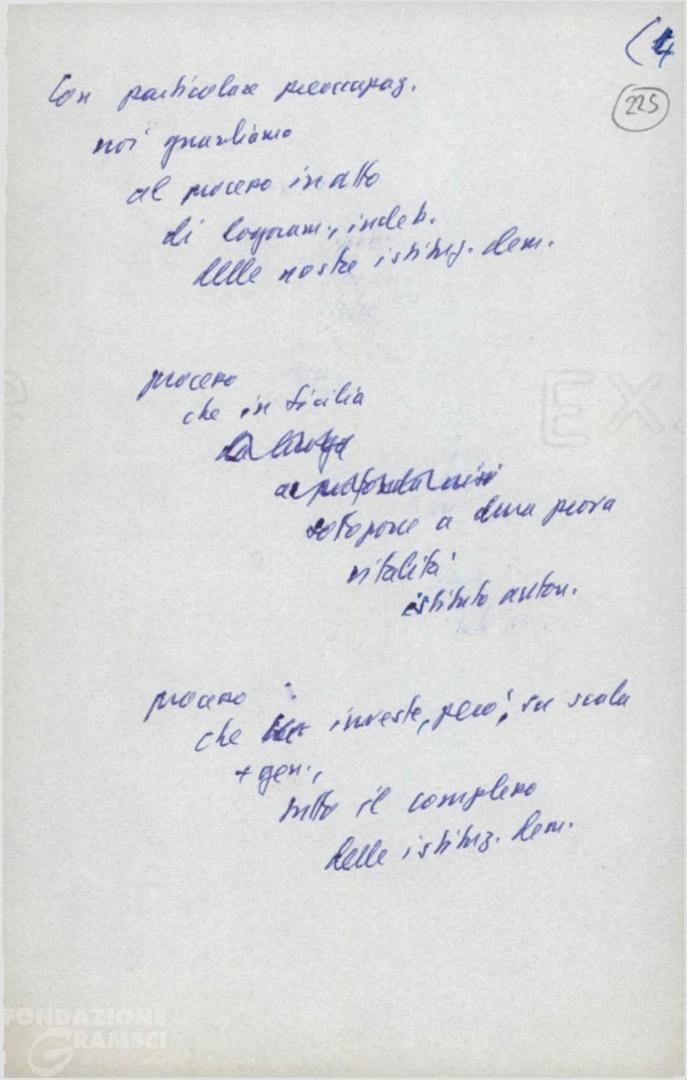 (4
225
Con particolare preoccupaz.
noi guardiamo
al processo in atto
di logoram., indeb.
delle nostre istituz. dem.
processo
che in Sicilia
sottopone a dura prova
vitalità
istituto auton.
processo
che investe, però, su scala
+ gen.,
tutto il complesso
delle istituz. dem.
EX
FONDAZIONE
GRAMSCI